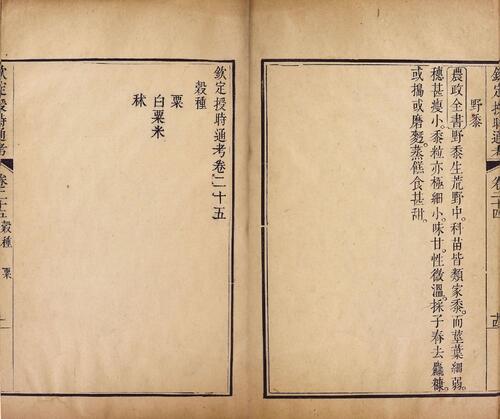 欽定授時通考 卷二十四
野黍
農政全書野黍生荒野中。科苗皆類家黍。而莖葉細弱。
穗甚瘦小。黍粒亦極細小。味甘。性微溫。採子舂去麤糠。
或搗或磨麪。蒸餻食甚甜。
欽定授時通考卷二十五
穀種
粟
白粟米
秫
欽定授時通考 卷二十五 穀種 粟